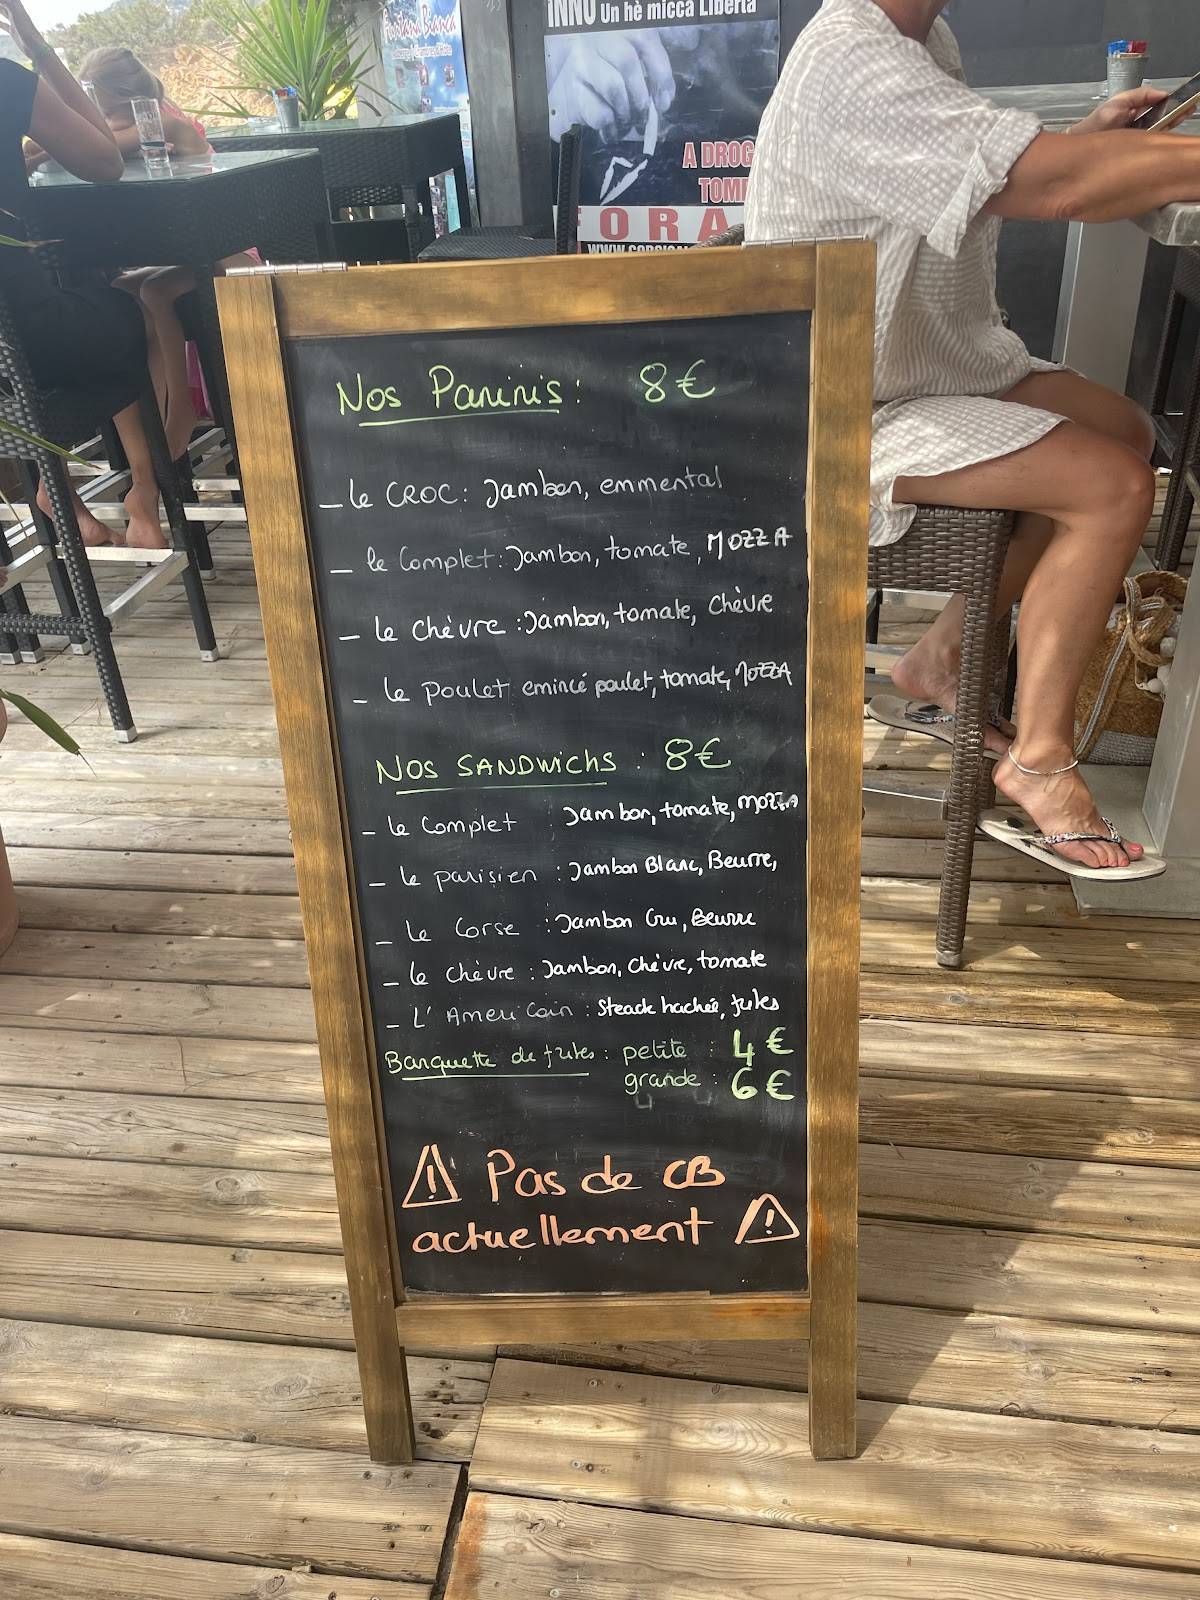 Fontana Bianca
INNU Un hè micca Libertà
A DROG
TOMB
FORA
WWW.CORSICA
Nos Paninis : 8€
- le CROC : Jambon, emmental
- le Complet : Jambon, tomate, MOZZA
- le chèvre : Jambon, tomate, chèvre
- le poulet emincé poulet, tomate, MOZZA
NOS SANDWICHS : 8€
- le Complet : Jambon, tomate, MOZZA
- le parisien : Jambon Blanc, Beurre,
- le Corse : Jambon Cru, Beurre
- le chèvre : Jambon, chèvre, tomate
- L'Americain : Steack hachée, frites
Barquette de frites : petite : 4€
grande : 6€
⚠ Pas de CB
actuellement ⚠